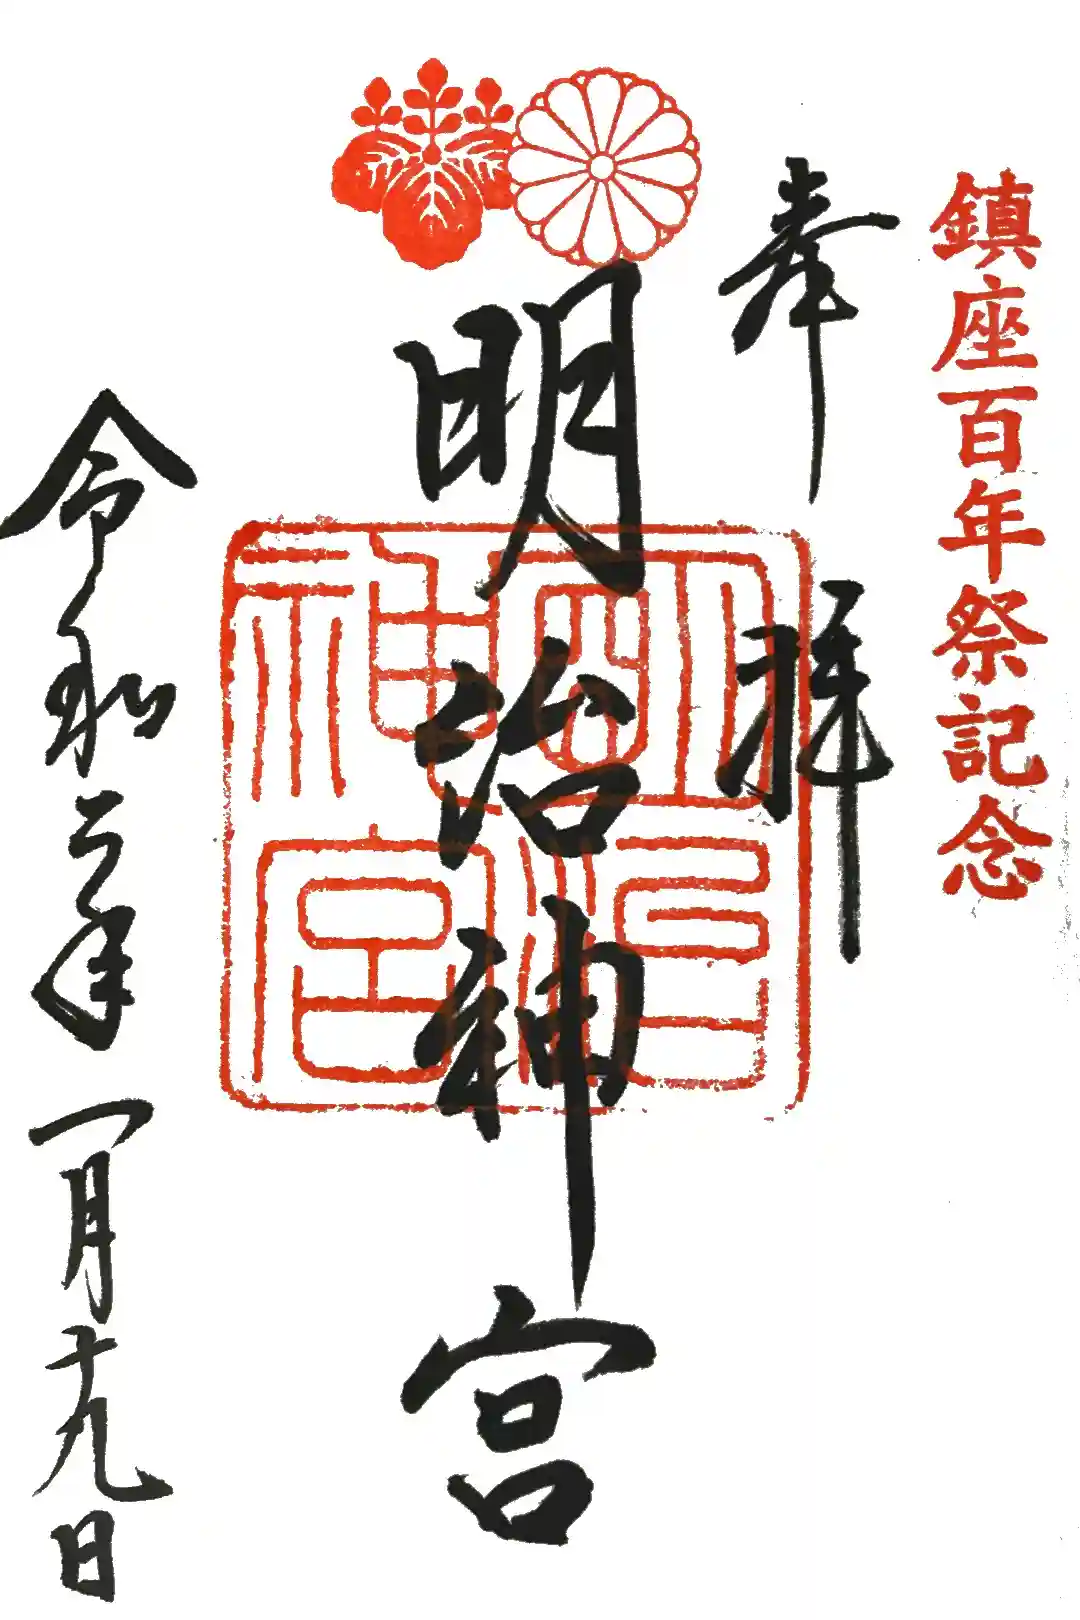 鎮座百年祭記念
奉拝
明治神宮
明治
神宮
令和二年一月十九日